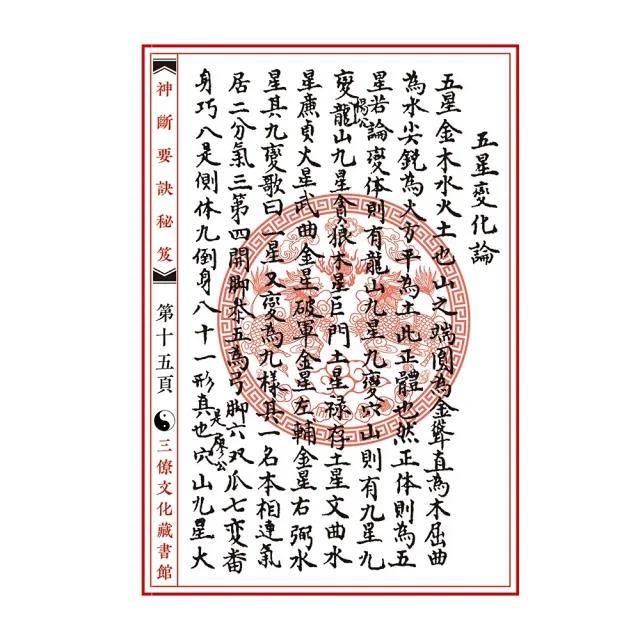 五星變化論
五星金木水火土也山之端圓為金聳直為木屈曲
為水尖銳為火方平為土此正體也然正体則為五
星若論變体則有龍山九星九變穴山則有九星九
變龍山九星貪狼木星巨門土星祿存土星文曲水
楊公
星廉貞火星武曲金星破軍金星左輔金星右弼水
星其九變歌曰一星又變為九樣其一名本相連氣
居二分氣三第四開脚本五為弓脚六双瓜七変番
身巧八是側体九倒身八十一形真也穴山九星大
是廖公
神斷要訣秘笈
第十五頁
三僚文化藏書館